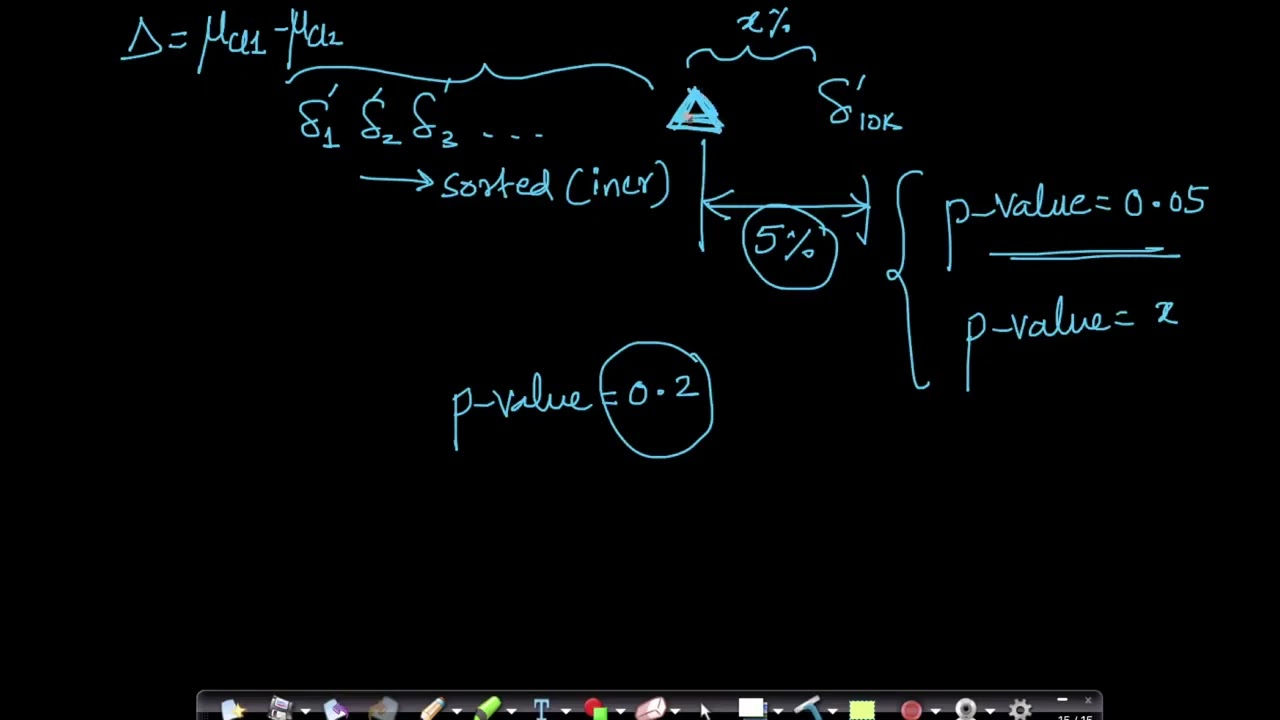 Δ = μcl1 - μcl2
x%
δ'1 δ'2 δ'3 ... Δ δ'10K
→ sorted (incr)
5%
p-value = 0.05
p-value = x
p-value = 0.2
T
15 / 15